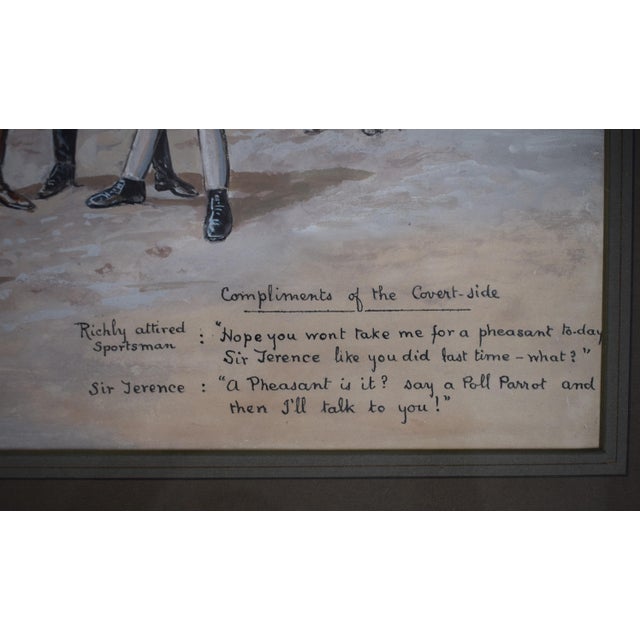 Compliments of the Covert-side
Richly attired Sportsman : "Hope you wont take me for a pheasant to-day
Sir Terence like you did last time - what?"
Sir Terence : "A Pheasant is it? say a Poll Parrot and
then I'll talk to you!"